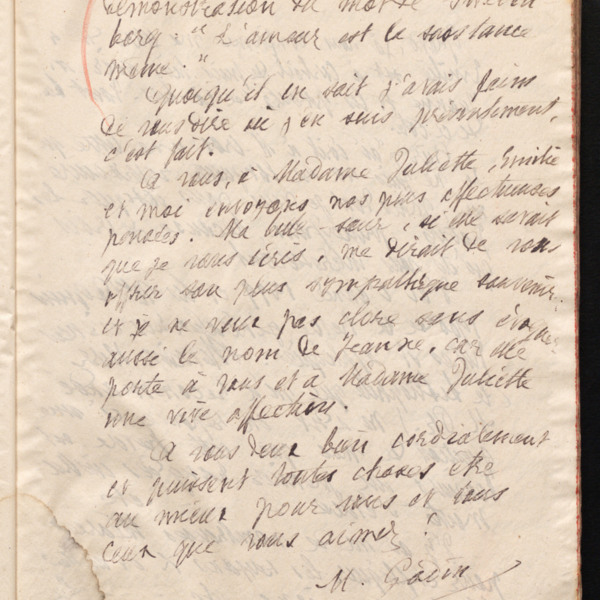 démonstration du mot de Sweden-
borg : "L'amour est la substance
même."
Quoiqu'il en soit j'avais faim
de vous dire où j'en suis présentement,
c'est fait.
A vous, à Madame Juliette, Emilie
et moi envoyons nos plus affectueuses
pensées. Ma belle-sœur, si elle savait
que je vous écris, me dirait de vous
offrir son plus sympathique souvenir.
et je ne veux pas clore sans évoquer
aussi le nom de Jeanne, car elle
porte à vous et à Madame Juliette
une vive affection.
A vous deux bien cordialement
et puissent toutes choses être
au mieux pour vous et tous
ceux que vous aimez !
M. Godin